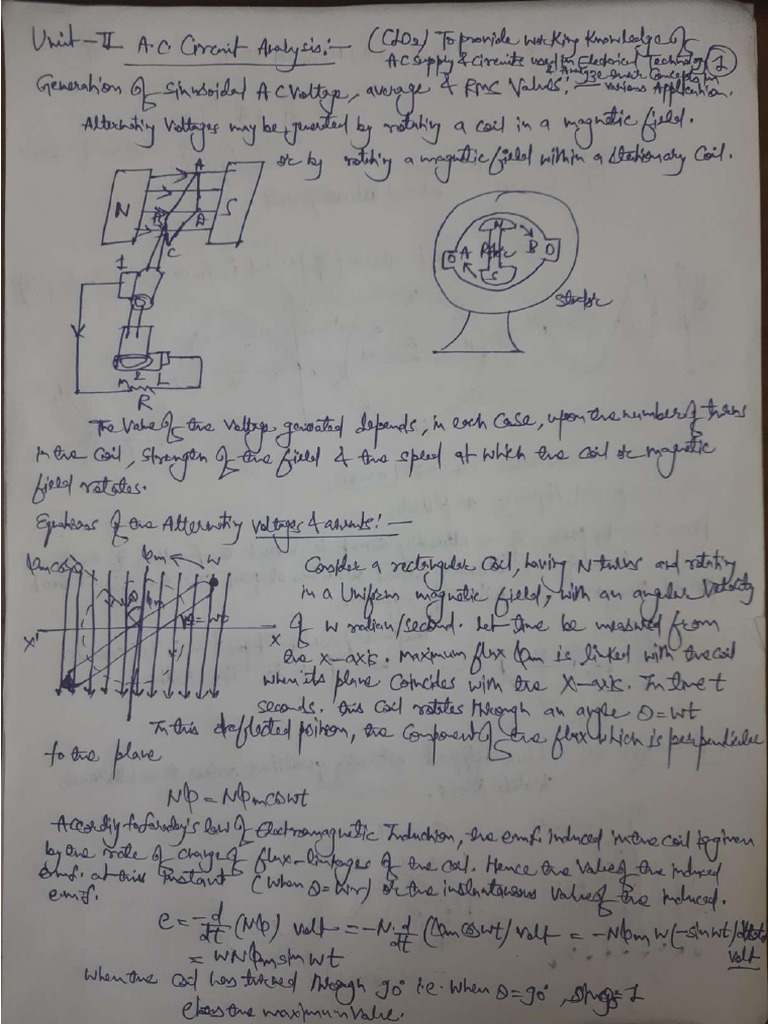 Unit-II A.C. Circuit Analysis:- (CLO2) To provide working knowledge of
AC supply & circuits used in Electrical Technology 1
& Analyze their concepts in
Generation of sinusoidal AC voltage, average & Rms Values: various Application.
Alternating voltages may be generated by rotating a coil in a magnetic field.
or by rotating a magnetic field within a stationary coil.
N S A B D C
1
2
m L
R
N S A B R
Stator
The Value of the voltage generated depends, in each case, upon the number of turns
in the coil, strength of the field & the speed at which the coil or magnetic
field rotates.
Equations of the Alternating voltages & currents:-
ϕm cosθ ϕm w
X' X
θ = wt
Consider a rectangular coil, having N turns and rotating
in a Uniform magnetic field, with an angular velocity
of w radian/second. Let time be measured from
the X-axis. Maximum flux ϕm is linked with the coil
when its plane coincides with the X-axis. In time t
seconds. this coil rotates through an angle θ = wt
In this deflected position, the component of the flux which is perpendicular
to the plane
Nϕ = Nϕm cos wt
According to faraday's law of Electromagnetic Induction, the e.m.f. induced in the coil is given
by the rate of change of flux-linkages of the coil. Hence the Value of the induced
e.m.f. at this instant (when θ = wt) or the instantaneous value of the induced.
e.m.f.
e = -d/dt (Nϕ) volt = -N.d/dt (ϕm cos wt) volt = -Nϕm w (-sin wt)
volt
= wNϕm sin wt
When the coil has turned through 90° i.e. when θ = 90°, Sin 90 = 1
e has the maximum value.